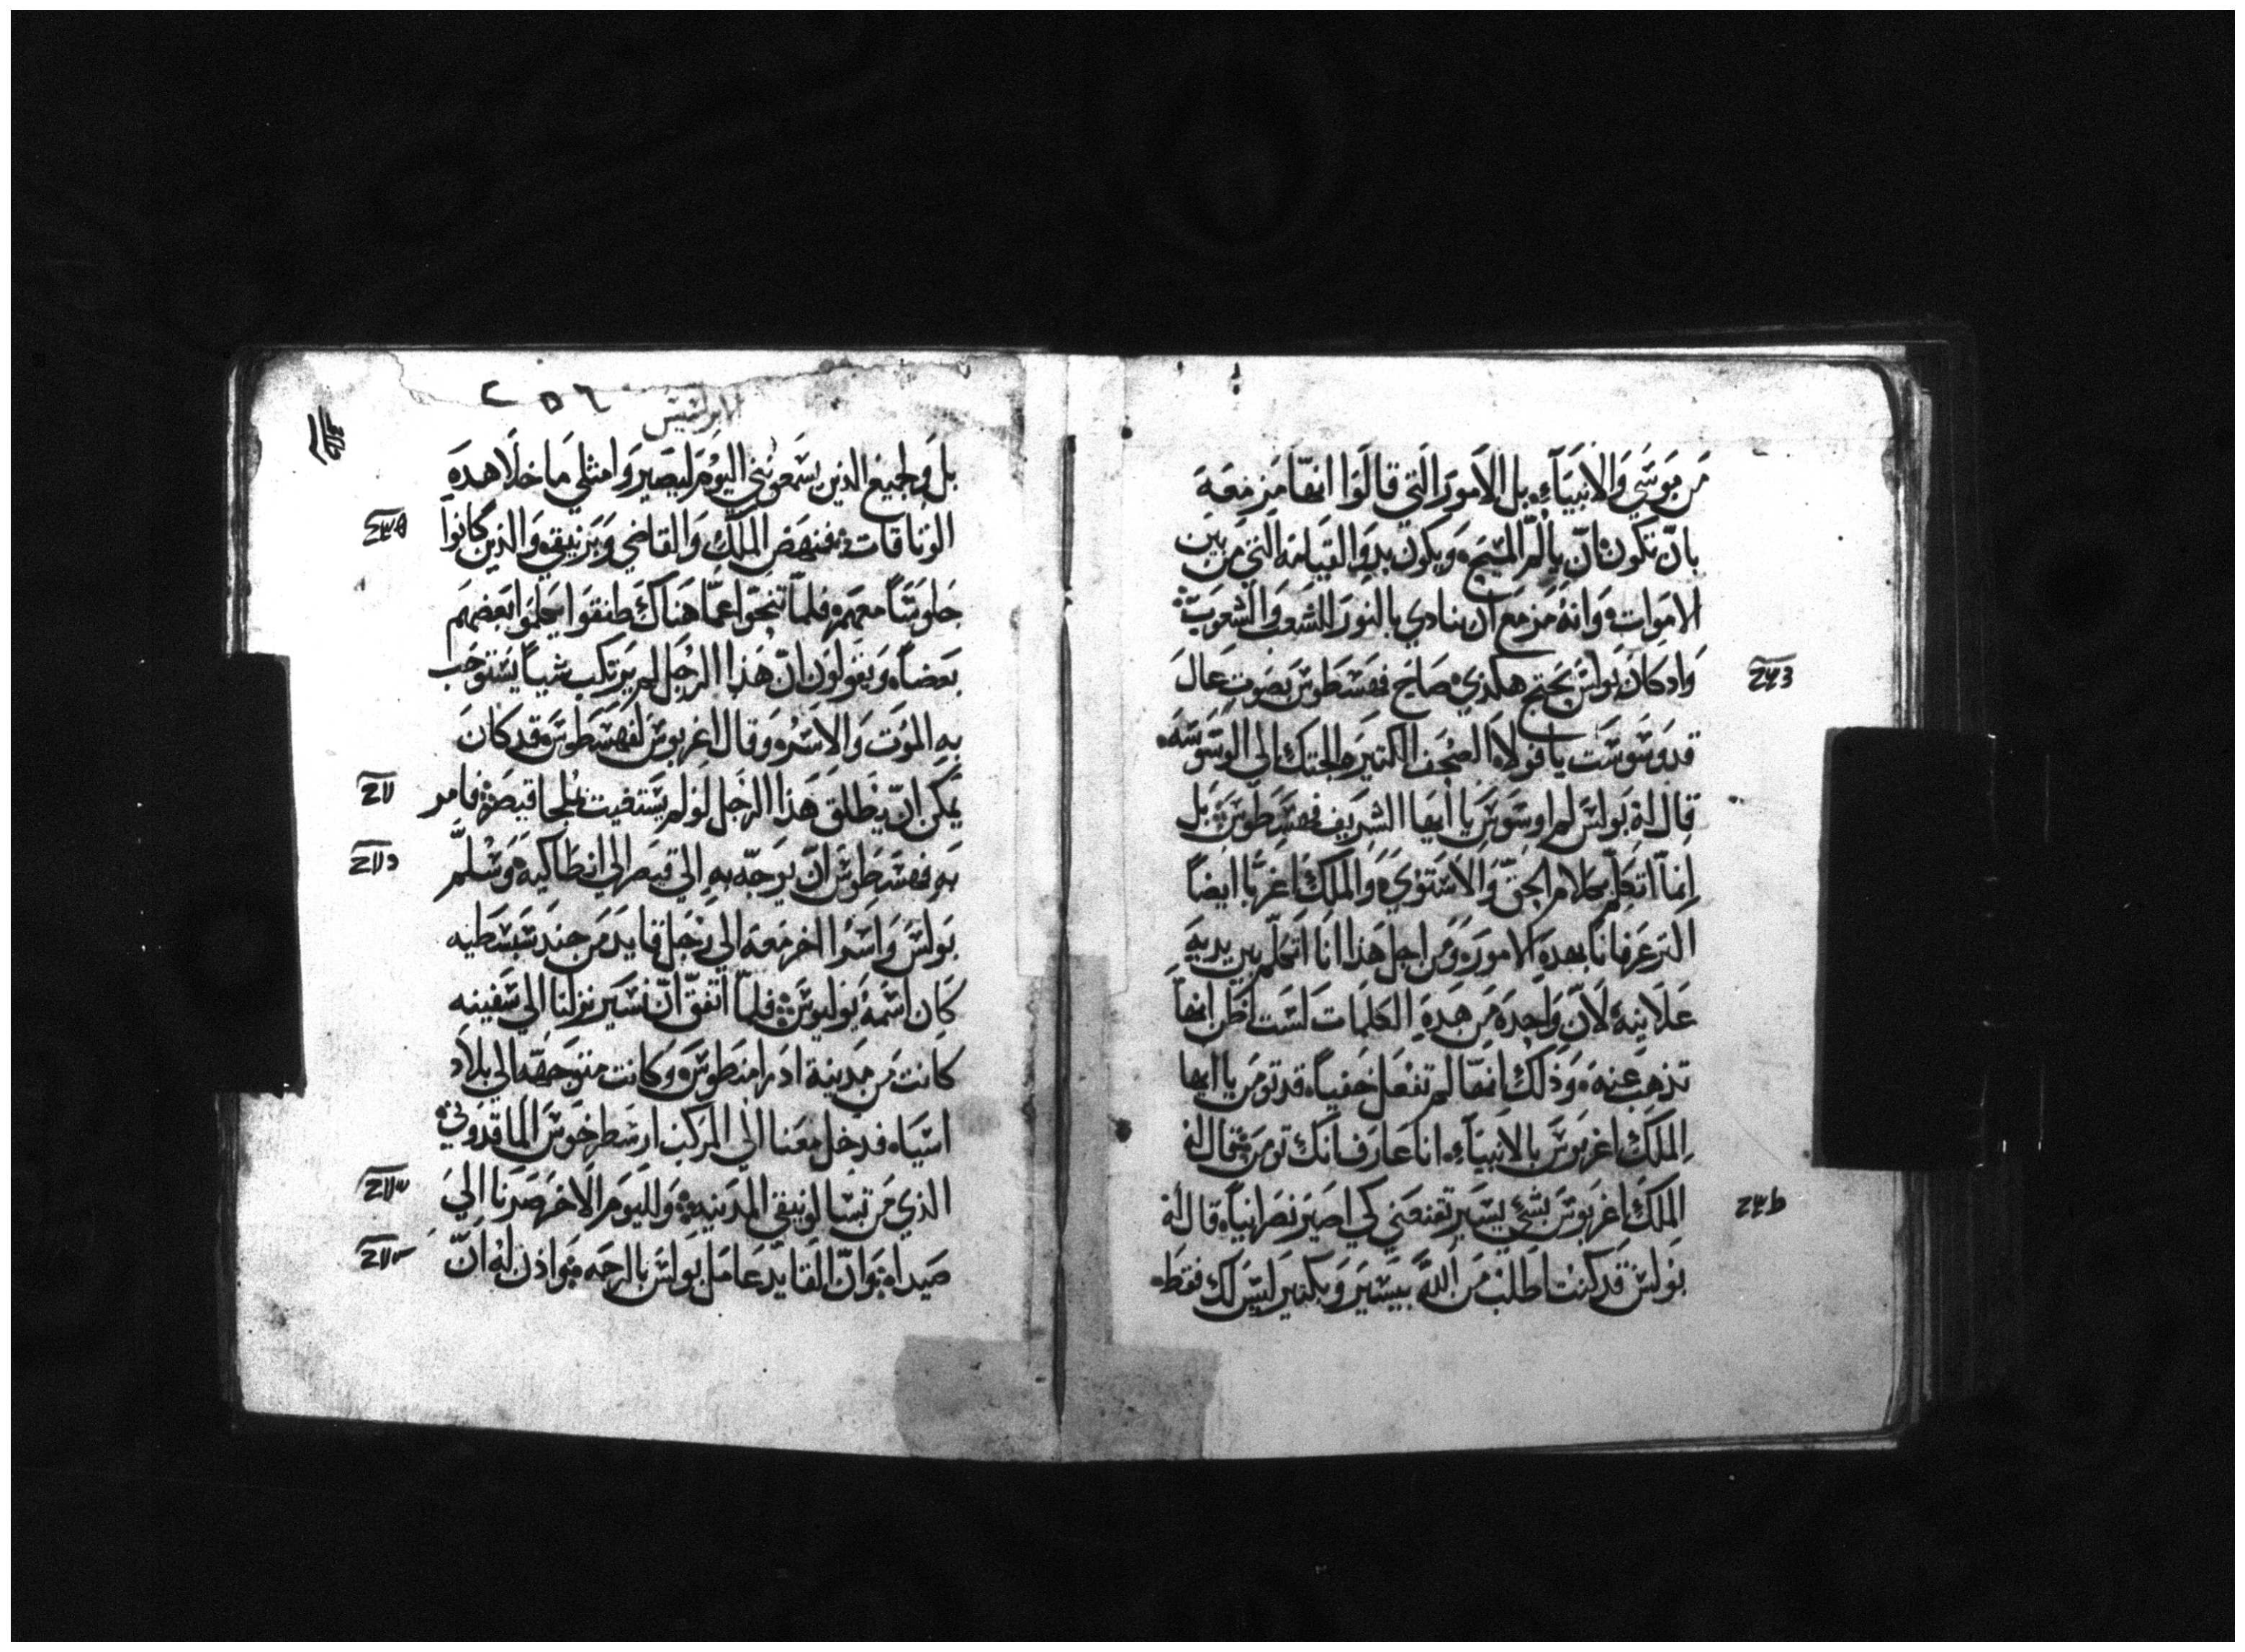 من موسي والانبياء بل الامور التي قالوا انها مزمعة
بان تكون ان يالم المسيح ويكون بدو القيامة التي من بين
الاموات وانه مزمع ان ينادي بالنور للشعب والشعوب
واد كان بولس يحتج هكدي صاح فهسطوس بصوت عال
قد وسوست يا فولا الصحف الكتيرة الجتك الي الوسوسه
قال له بولس لم اوسوس يا ايها الشريف فهسطوس بل
انما اتكلم بكلام الحق والاستوي والملك اغربا ايضا
اكتر عرفانا بهده الامور ومن اجل هذا انا اتكلم بين يديه
علانية لان واحدة من هده الكلمات لست اظن انها
تذهب عنه وذلك انها لم تفعل خفيا قد تومن يا ايها
الملك اغربوس بالانبياء انا عارف انك تومن فقال له
الملك اغربوس بشي يسير تقنعني كي اصير نصرانيا قال له
بولس قد كنت اطلب من الله بيسير وبكتير ليس لك فقط
ابركسيس
بل ولجميع الذين يسمعونني اليوم ليصيروا مثلي ما خلا هده
الوتاقات فنهض الملك والقاضي وبرنيقي والذين كانوا
جلوسا معهم فلما تنحوا عما هناك طفقوا يكلموا بعضهم
بعضا ويقولون ان هذا الرجل لم يرتكب شيا يستوجب
به الموت والاسر وقال اغربوس لفهسطوس قد كان
يمكن ان يطلق هذا الرجل لو لم يستغيت بملجا قيصر فامر
به فهسطوس ان يوجه به الي قيصر الي انطاكيه وسلم
بولس واسرا اخر معه الي رجل قايد من جند سبسطيه
كان اسمه يوليوس فلما اتفق ان نسير نزلنا الي سفينه
كانت من مدينة ادرامنطوس وكانت متوجهه الي بلاد
اسيا فدخل معنا الي المركب ارسطرخوس الماقدوني
الذي من تسالونيقي المدينه ولليوم الاخر صرنا الي
صيدا وان القايد عامل بولس بالرحمه واذن له ان